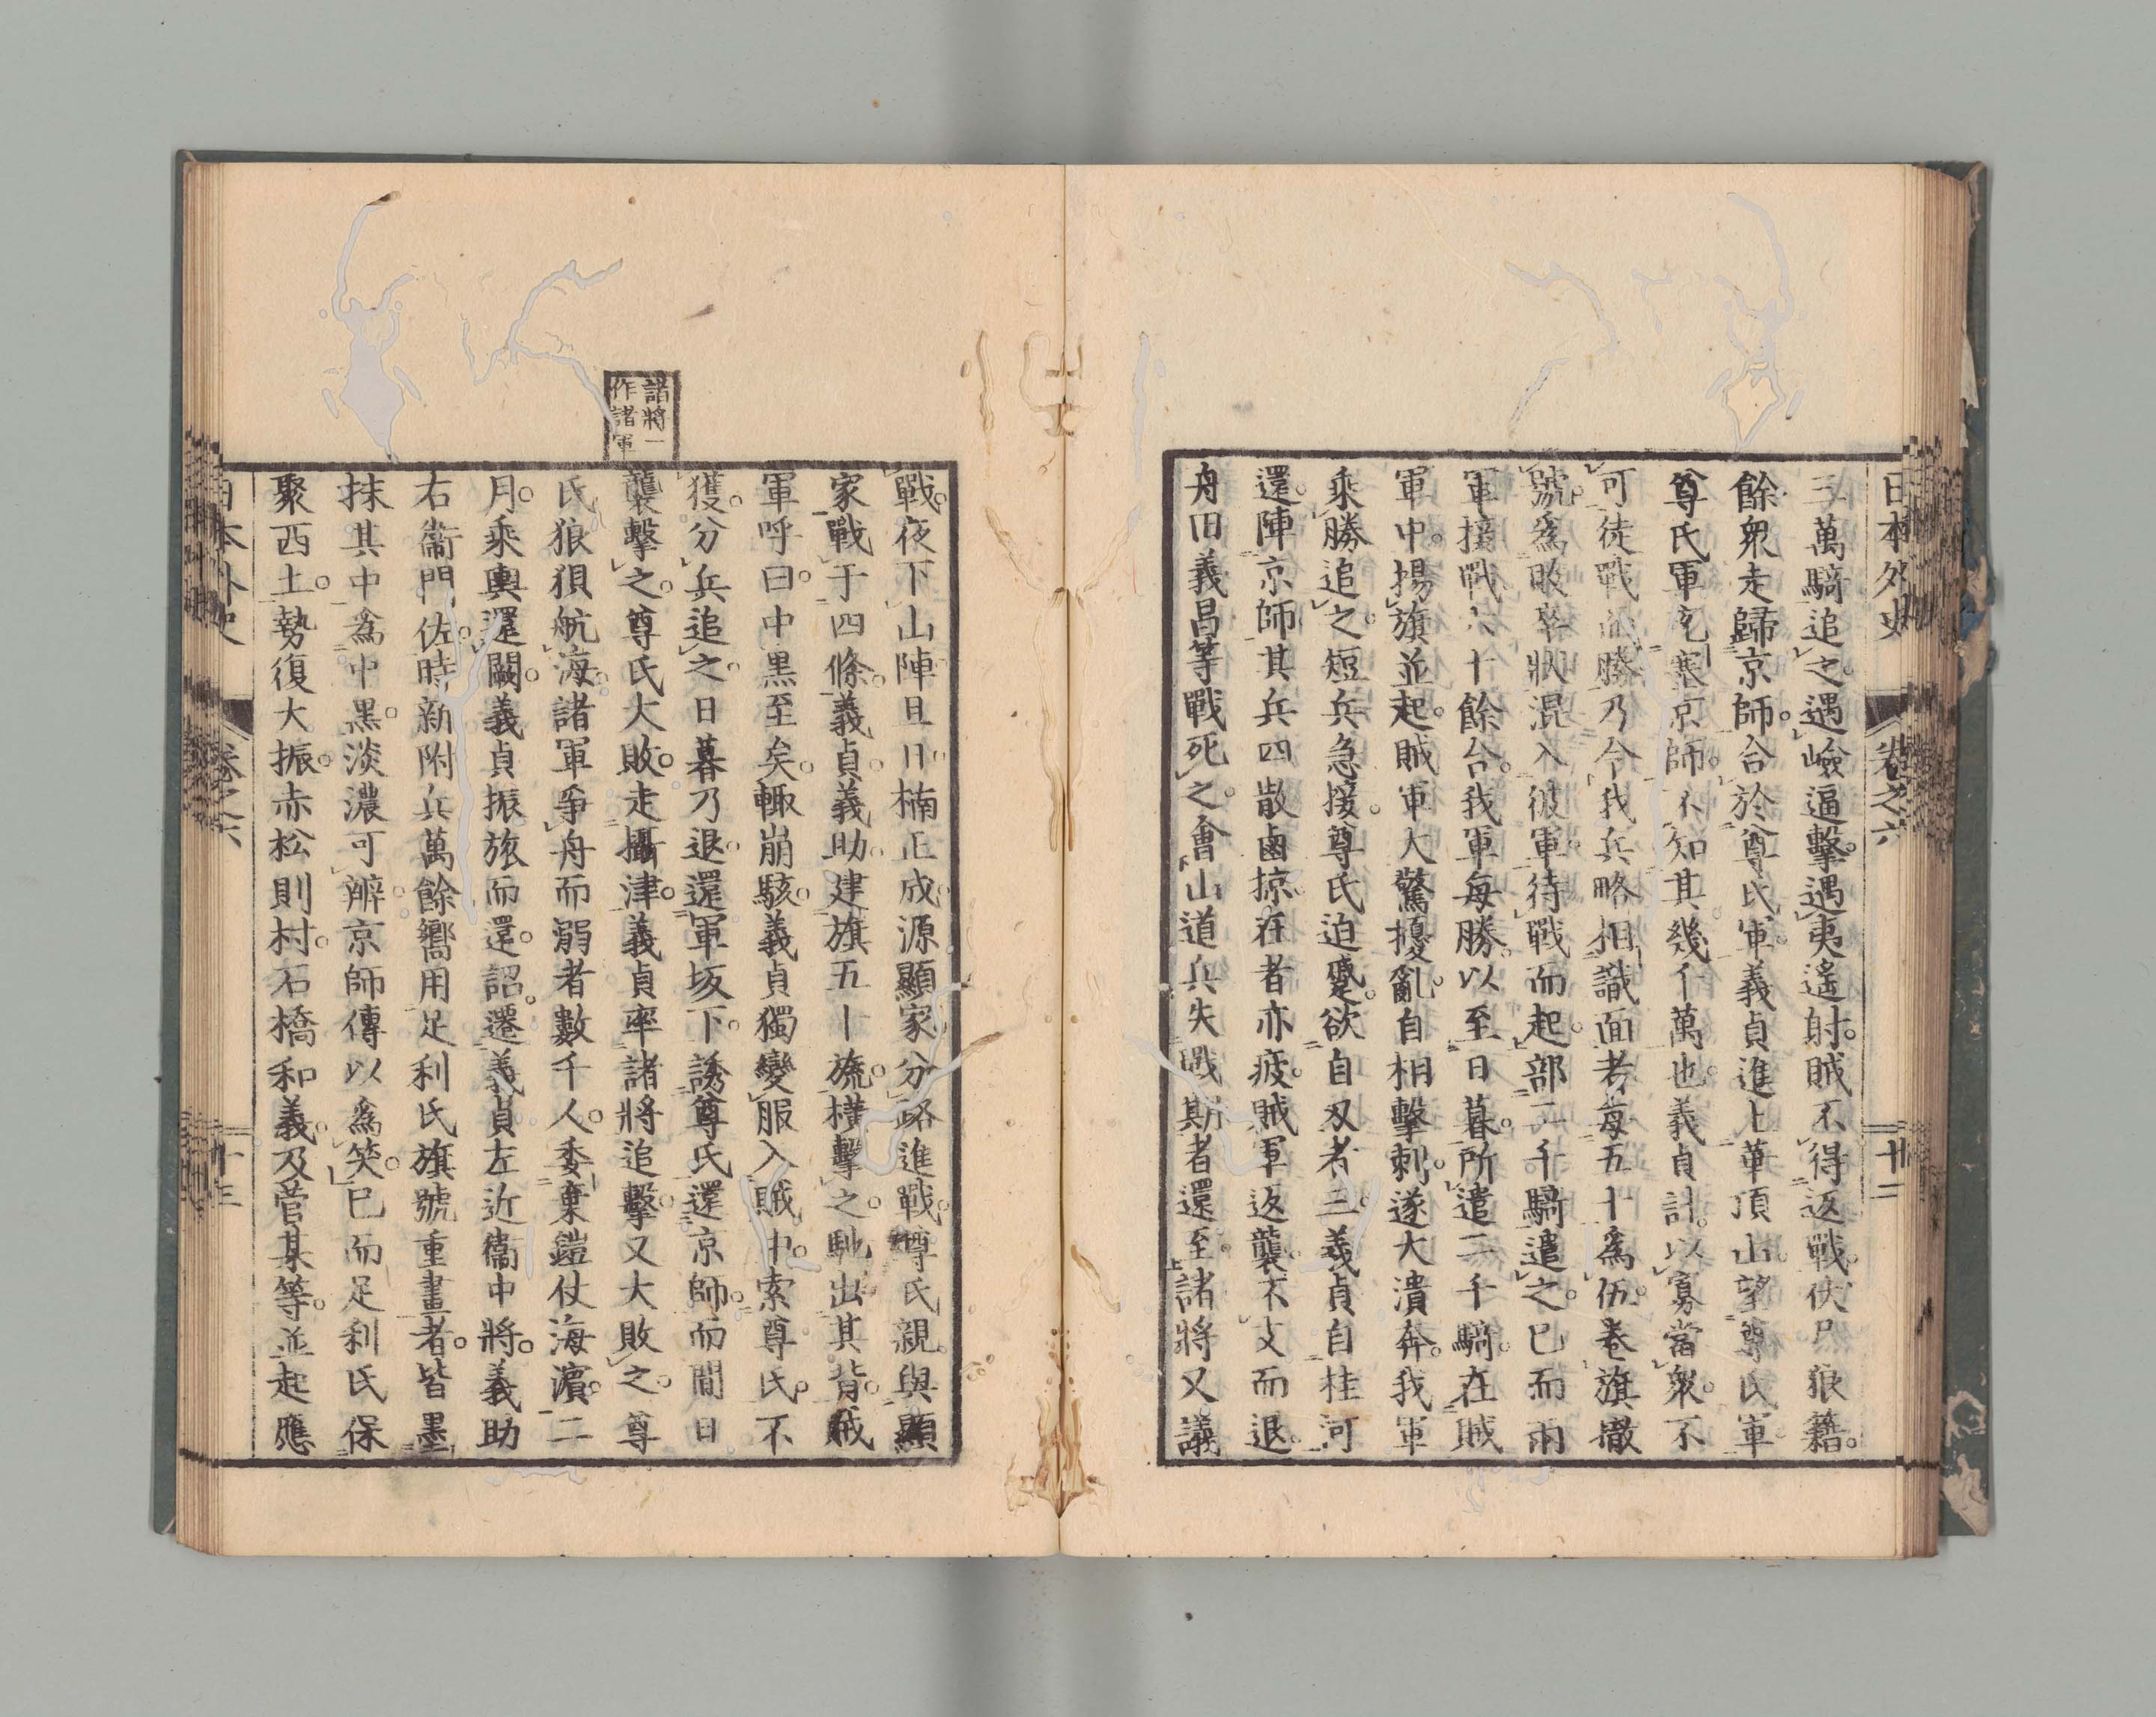 日本外史
卷之六
十二
三萬騎追之。遇嶮逼擊。遇夷遙射。賊不得返戰。伏尸狼籍。
餘衆走歸京師。合於尊氏軍。義貞進上華頂山。望尊氏軍。
尊氏軍充塞京師。不知其幾千萬也。義貞計。以寡當衆。不
可徒戰而勝。乃令我兵略相識面者。每五十爲伍。卷旗撤
號。爲敗卒狀。混入彼軍。待戰而起。部二千騎遣之。已而兩
軍接戰六十餘合。我軍每勝。以至日暮。所遣二千騎。在賊
軍中。揚旗並起。賊軍大驚擾亂。自相擊刺。遂大潰奔。我軍
乘勝追之。短兵急接。尊氏迫蹙。欲自刃者三。義貞自桂河
還。陣京師。其兵四散鹵掠。在者亦疲。賊軍返襲。不支而退。
舟田義昌等戰死之。會山道兵失戰期者還至。諸將又議
戰。夜下山陣。旦日楠正成源顯家分路進戰。尊氏親與顯
家戰于四條。義貞義助建旗五十旒。橫擊之。馳出其背。賊
軍呼曰。中黑至矣。輒崩駭。義貞獨變服入賊中。索尊氏。不
獲。分兵追之。日暮乃退。還軍坂下。誘尊氏還京師。而間日
襲擊之。尊氏大敗。走攝津。義貞率諸將追擊。又大敗之。尊
諸將一
作諸軍
氏狼狽航海。諸軍爭舟而溺者數千人。委棄鎧仗海濱。二
月。乘輿還闕。義貞振旅而還。詔。遷義貞左近衞中將。義助
右衞門佐。時新附兵萬餘。嚮用足利氏旗號重畫者。皆墨
抹其中爲中黑。淡濃可辨。京師傳以爲笑。已而足利氏保
聚西土。勢復大振。赤松則村。石橋和義。及菅某等。並起應
日本外史
卷之六
十三